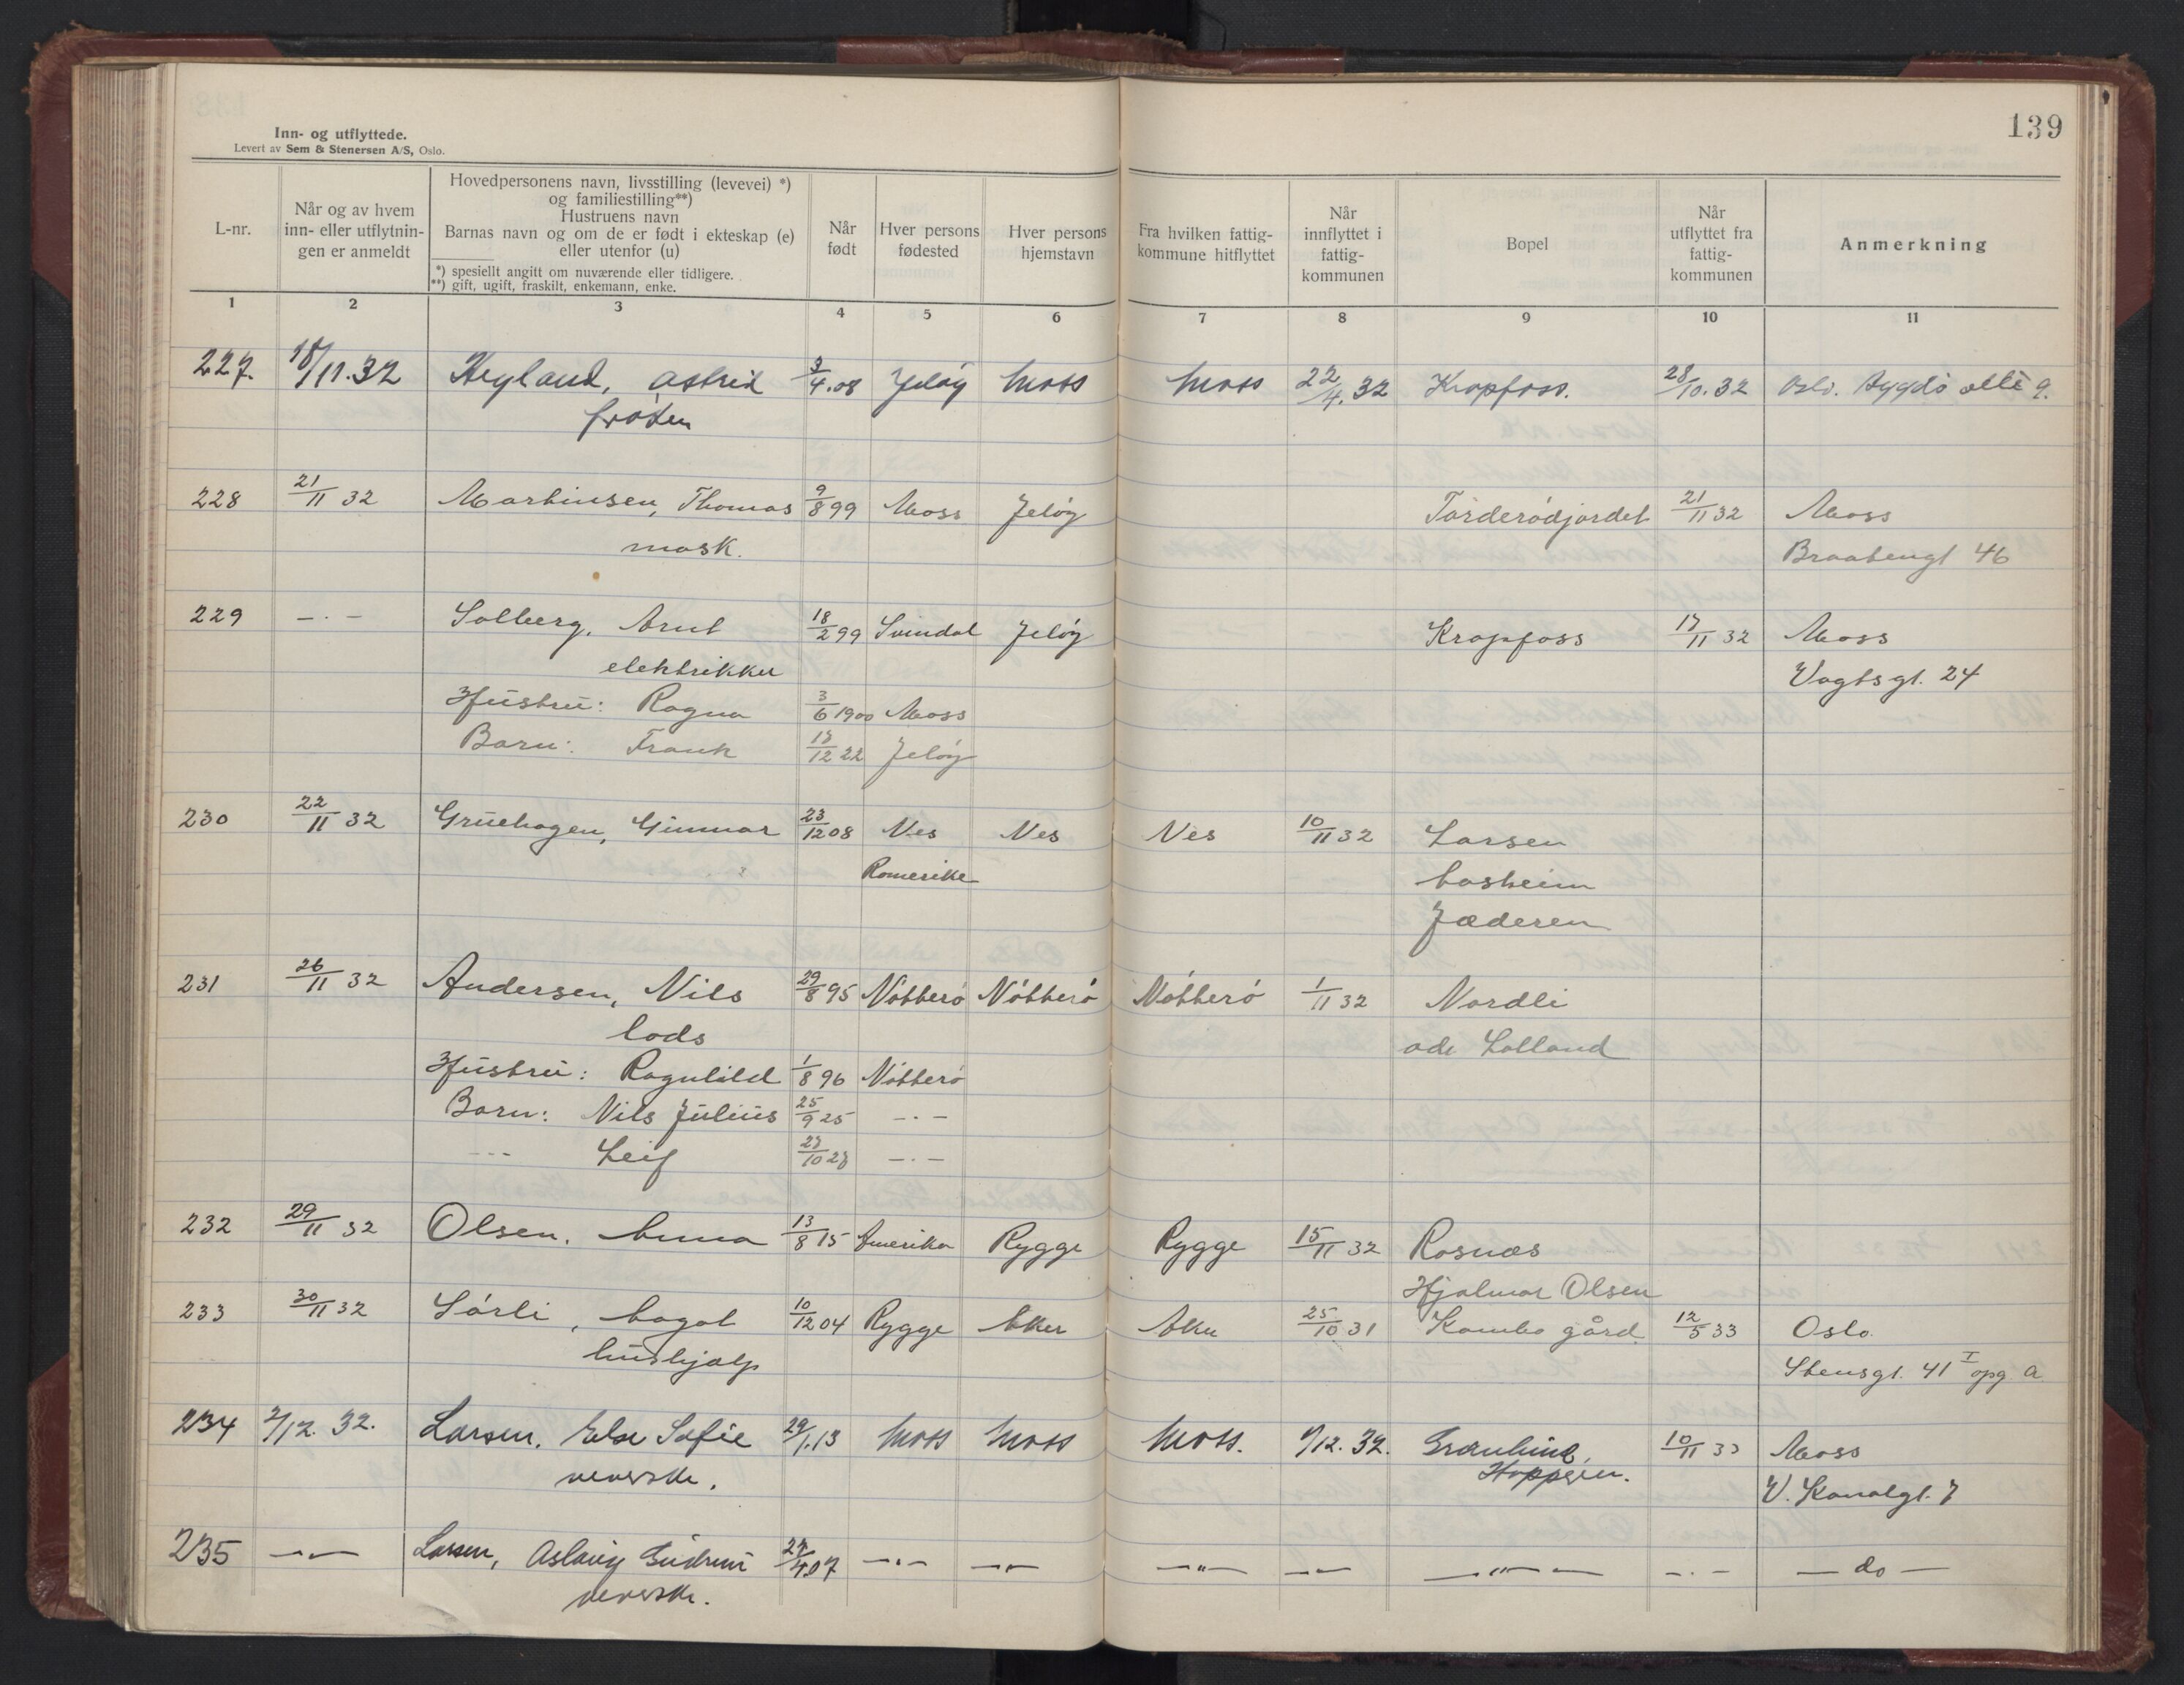 139
Inn- og utflyttede.
Levert av Sem & Stenersen A/S, Oslo.
L-nr.
Når og av hvem
inn- eller utflytnin-
gen er anmeldt
Hovedpersonens navn, livsstilling (levevei) *)
og familiestilling**)
Hustruens navn
Barnas navn og om de er født i ekteskap (e)
eller utenfor (u)
*) spesiellt angitt om nuværende eller tidligere.
**) gift, ugift, fraskilt, enkemann, enke.
Når
født
Hver persons
fødested
Hver persons
hjemstavn
Fra hvilken fattig-
kommune hitflyttet
Når
innflyttet i
fattig-
kommunen
Bopel
Når
utflyttet fra
fattig-
kommunen
Anmerkning
1 2 3 4 5 6 7 8 9 10 11
227. 18/11.32 Hegland, Astrid 3/4.08 Jeløy Moss Moss 22/4.32 Kropfoss. 28/10.32 Oslo. Bygdø allé 9.
frøken
228 21/11 32 Martinsen, Thomas 9/8 99 Moss Jeløy Torderødjordet 21/11 32 Moss
mask. Braatengt 46
229 -·- Solberg, Arnt 18/2 99 Svindal Jeløy Kropfoss 17/11 32 Moss
elektrikker Vogtsgt. 24
Hustru: Ragna 3/6 1900 Moss
Barn: Frank 17/12 22 Jeløy
230 22/11 32 Gruehagen, Gunnar 23/12 08 Nes Nes Nes 10/11 32 Larsen
Romerike
Jæderen
231 26/11 32 Andersen, Nils 29/8 95 Nøtterø Nøtterø Nøtterø 1/11 32 Nordli
lods
Hustru: Ragnhild 1/8 96 Nøtterø
Barn: Nils Julius 25/9 25 -·-
--- Leif 27/10 27 -·-
232 29/11 32 Olsen, Anna 13/8 15 Amerika Rygge Rygge 15/11 32 Rosnæs
Hjalmar Olsen
233 30/11 32 Sørli, Aagot 10/12 04 Rygge Aker Aker 25/10 31 Kambo gård 12/5 33 Oslo.
hushjælp Stensgt. 41 I opg a
234 2/12. 32. Larsen, Else Sofie 29/1.13 Moss Moss Moss. 1/12. 32. Grønlund, 10/11 33 Moss
veverske. Hoppern. V. Kanalgt. 7
235 -„- Larsen, Aslaug Gudrun 27/4.07 -·- -„- -„- -„- -„- -·- - do -
veverske.